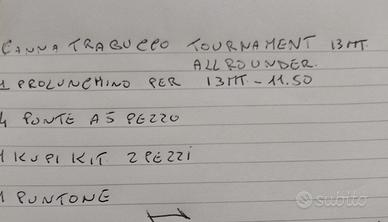 CANNA TRABUCCO TOURNAMENT 13MT.
ALLROUNDER.
1 PROLUNCHINO PER 13MT - 11.50
4 PUNTE A 5 PEZZO
1 KUPI KIT 2 PEZZI
1 PUNTONE
subito